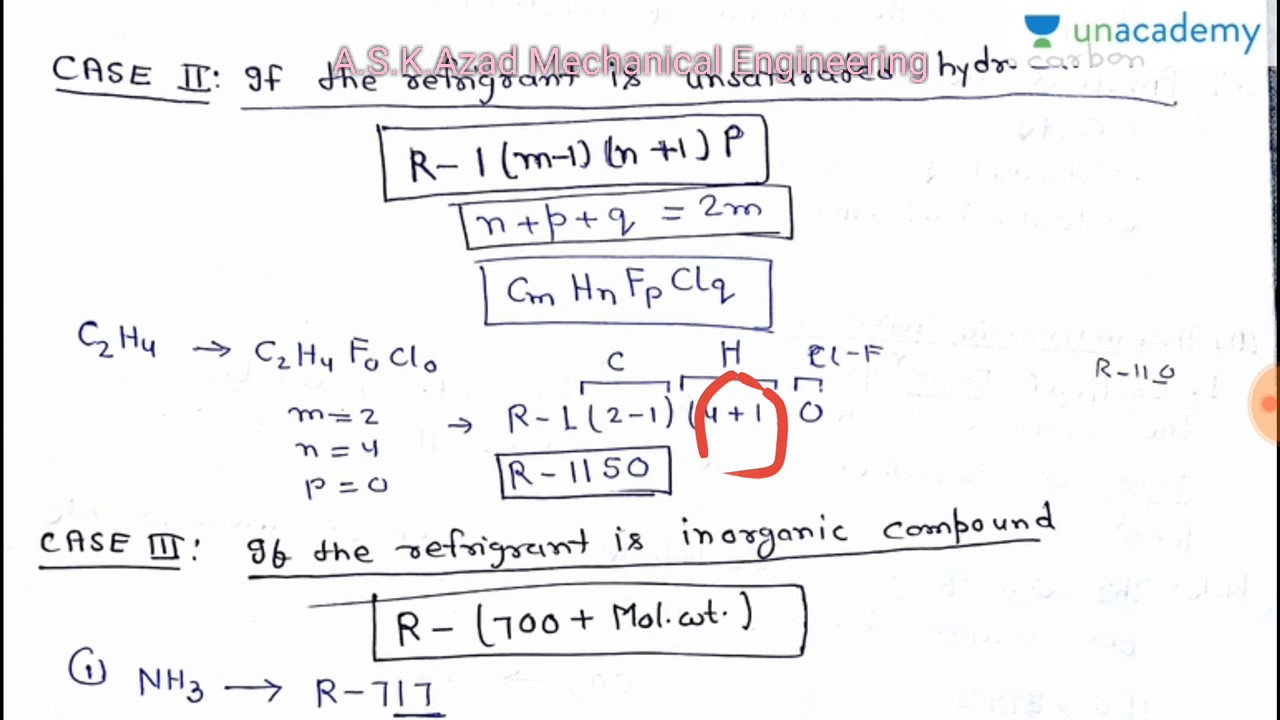 unacademy
A.S.K.Azad Mechanical Engineering
CASE II: If the refrigrant is unsaturated hydrocarbon
R-1(m-1)(n+1)P
n+p+q = 2m
Cm Hn Fp Clq
C2H4 → C2H4 F0 Cl0
C H Cl-F
R-110
m=2 → R-1(2-1)(4+1 0
n=4
P=0
R-1150
CASE III: If the refrigrant is inorganic compound
R-(700+Mol.wt.)
① NH3 → R-717